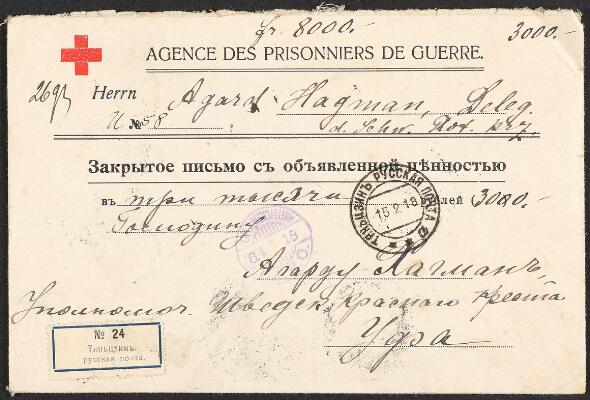 fr. 8000.-
3000.-
AGENCE DES PRISONNIERS DE GUERRE.
Herrn Agard Hagman, Deleg.
d. Schw. Rot. Krz.
Закрытое письмо съ объявленной цѣнностью
въ три тысячи рублей 3000.-
Господину
ТЯНЬЦЗИНЪ РУССКАЯ ПОЧТА
15 2 18
Агарду Хагманъ,
Уполномоч. Шведск Краснаго Креста
Уфа
№ 24
Тяньцзинъ.
русская почта.